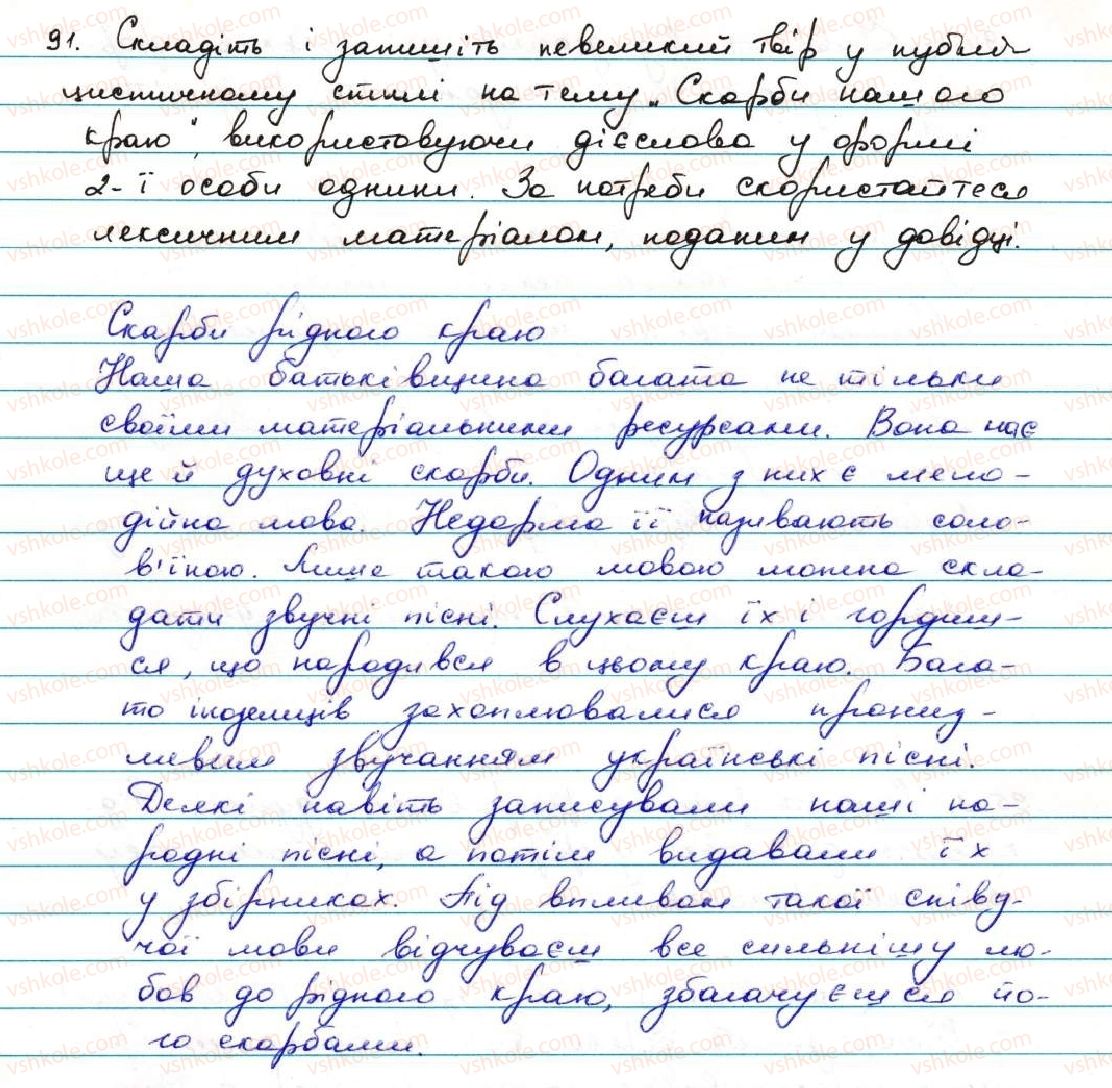 91. Складіть і запишіть невеликий твір у публі-
цистичному стилі на тему „Скарби нашого
краю", використовуючи дієслова у формі
2-ї особи однини. За потреби скористайтеся
лексичним матеріалом, поданим у довідці.
Скарби рідного краю
Наша батьківщина багата не тільки
своїми матеріальними ресурсами. Вона має
ще й духовні скарби. Одним з них є мело-
дійна мова. Недарма її називають соло-
в'їною. Лише такою мовою можна скла-
дати звучні пісні. Слухаєш їх і гордиш-
ся, що народився в цьому краю. Бага-
то іноземців захоплювалися прониз-
ливим звучанням української пісні.
Деякі навіть записували наші на-
родні пісні, а потім видавали їх
у збірниках. Під впливом такої співу-
чої мови відчуваєш все сильнішу лю-
бов до рідного краю, збагачуєшся йо-
го скарбами.